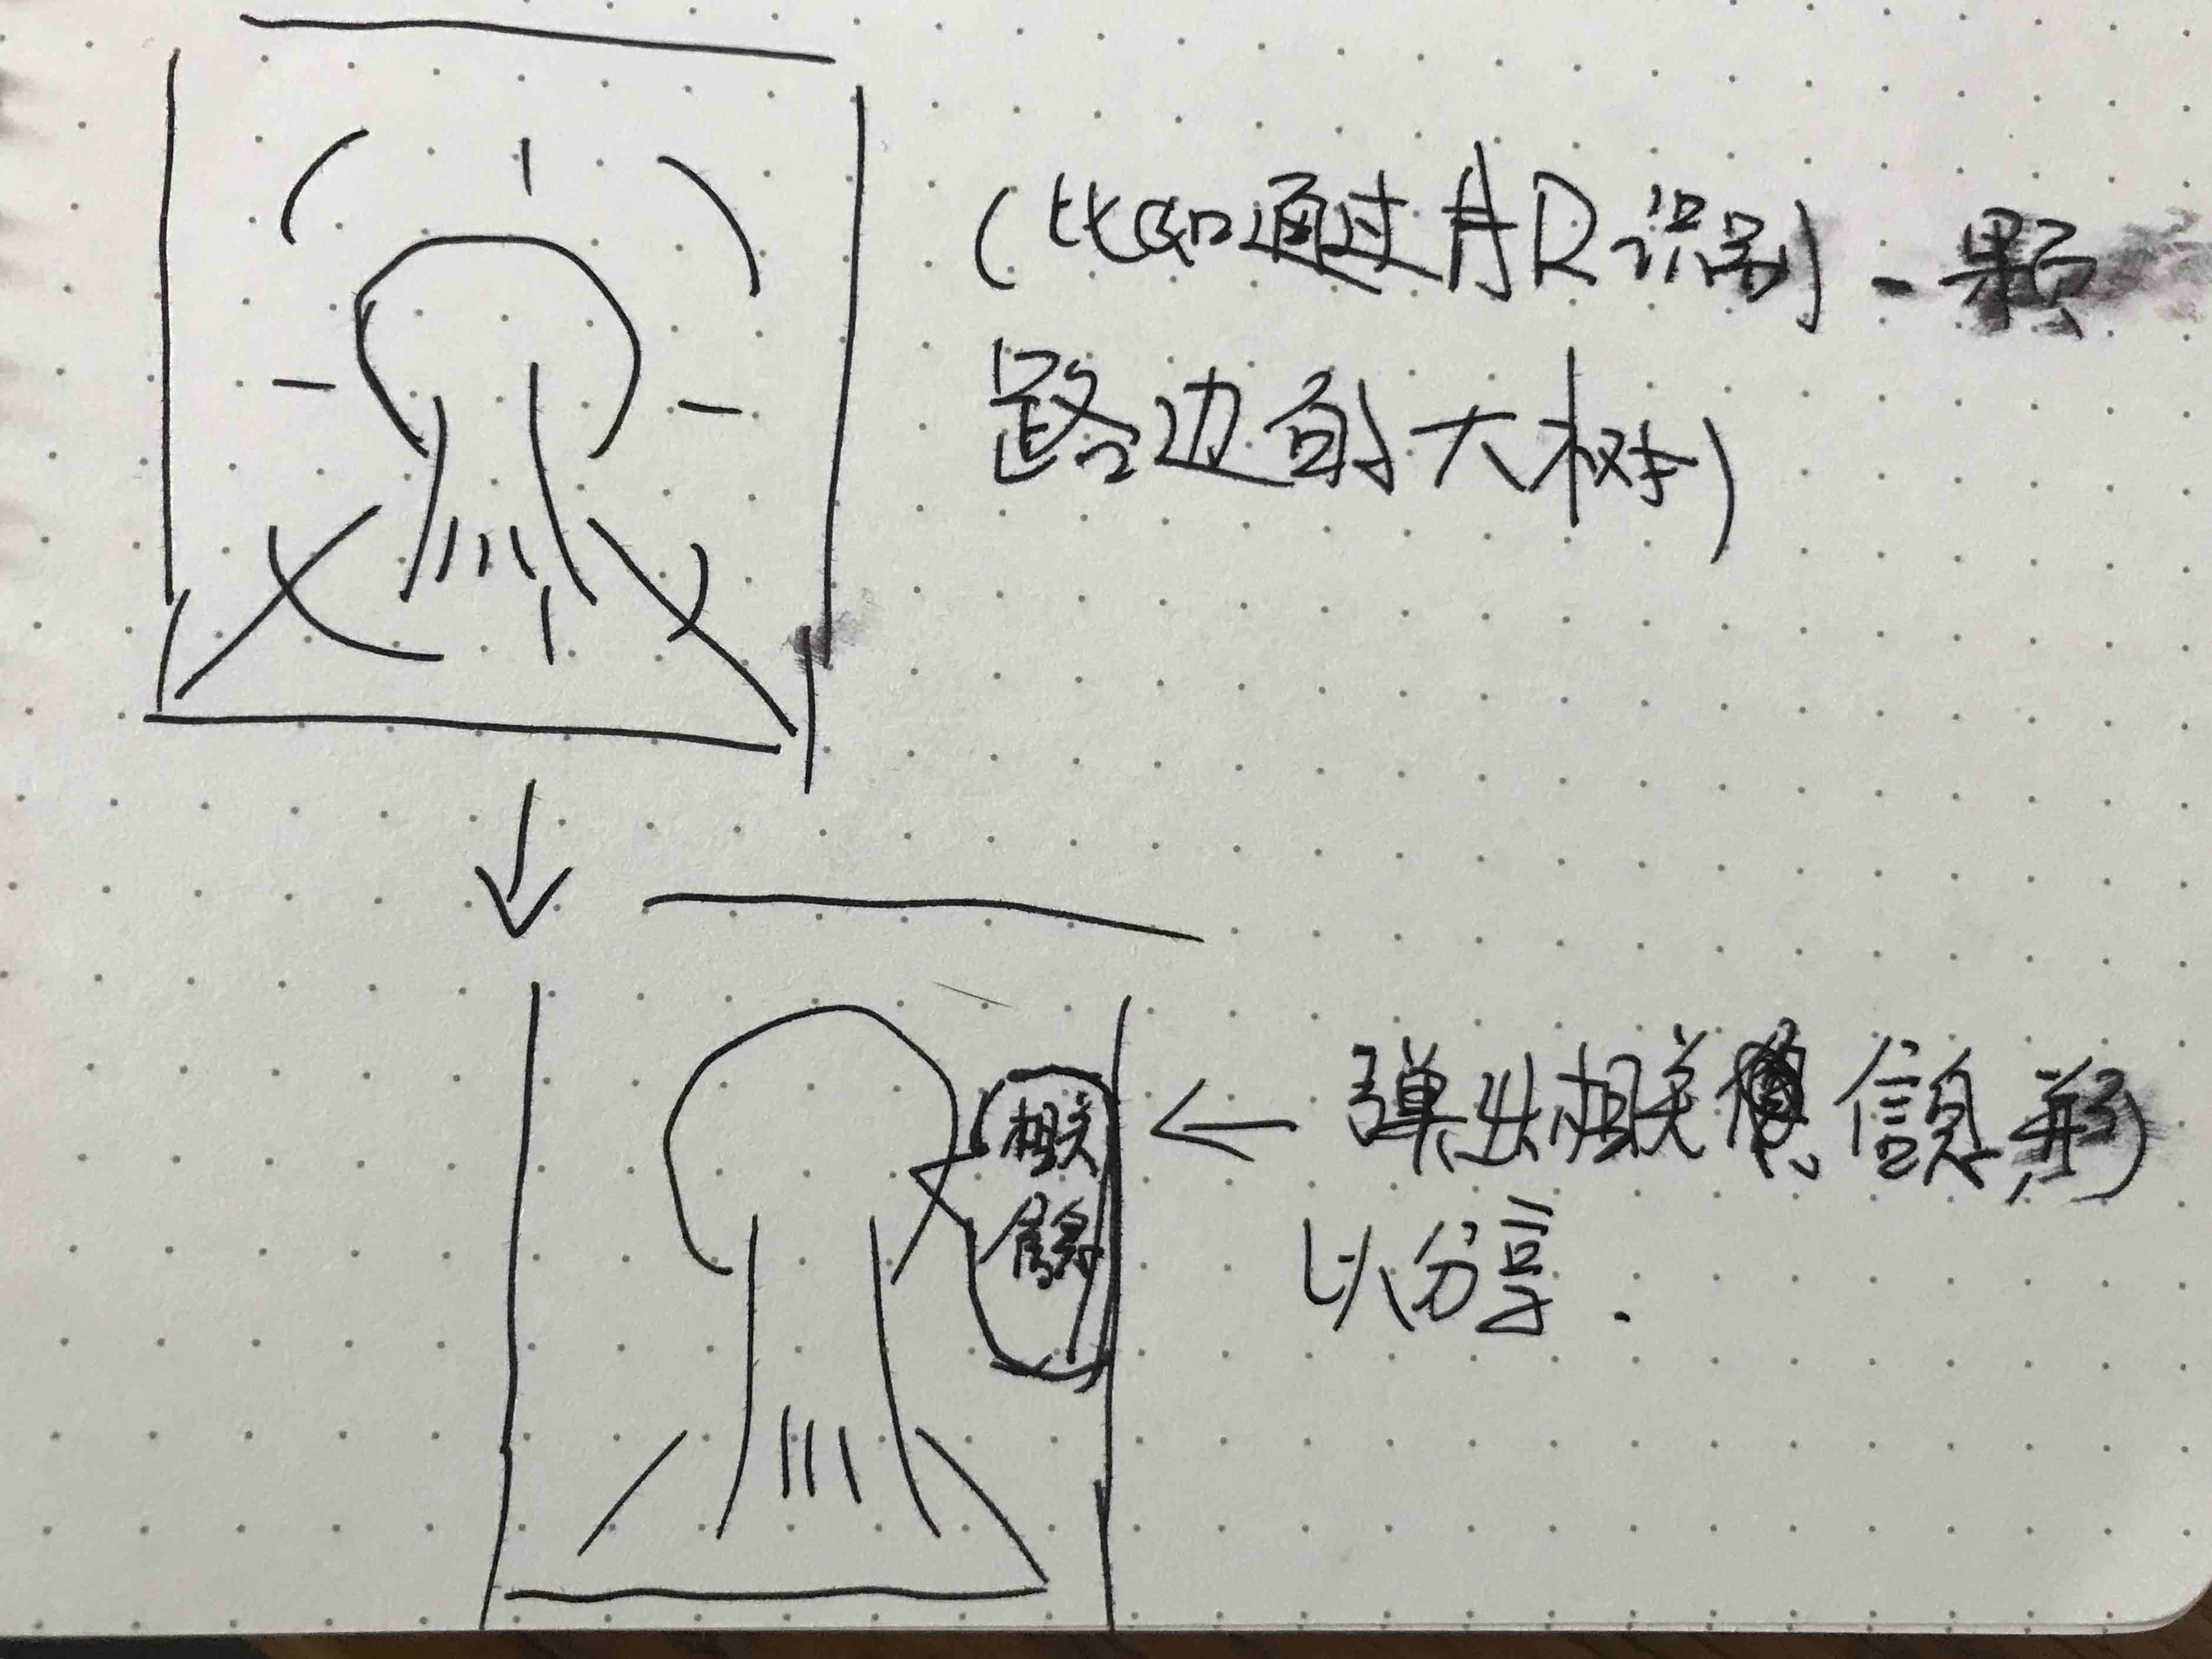 (比如通过AR识别一颗
路边的大树)
相关
信息
弹出相关信息,可
以分享.